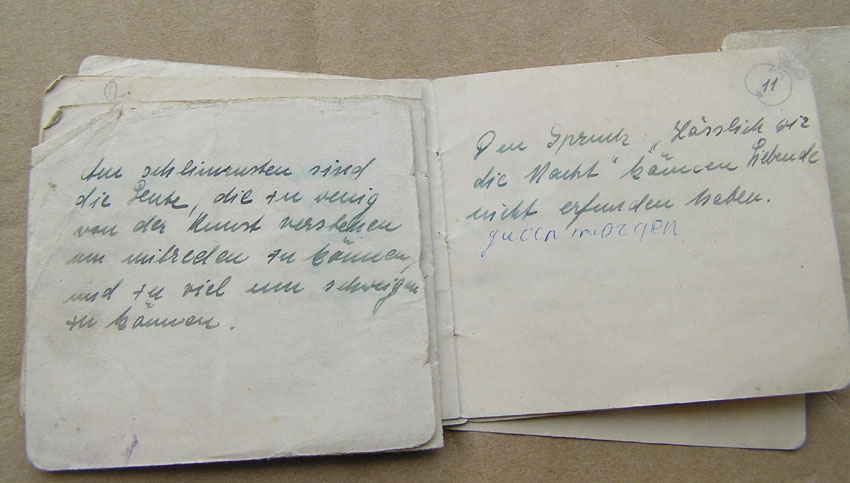 Am schlimmsten sind
die Leute, die zu wenig
von der Kunst verstehen
um mitreden zu können,
und zu viel um schweigen
zu können.
11
Den Spruch „Hässlich wie
die Nacht" können Liebende
nicht erfunden haben.
guten morgen